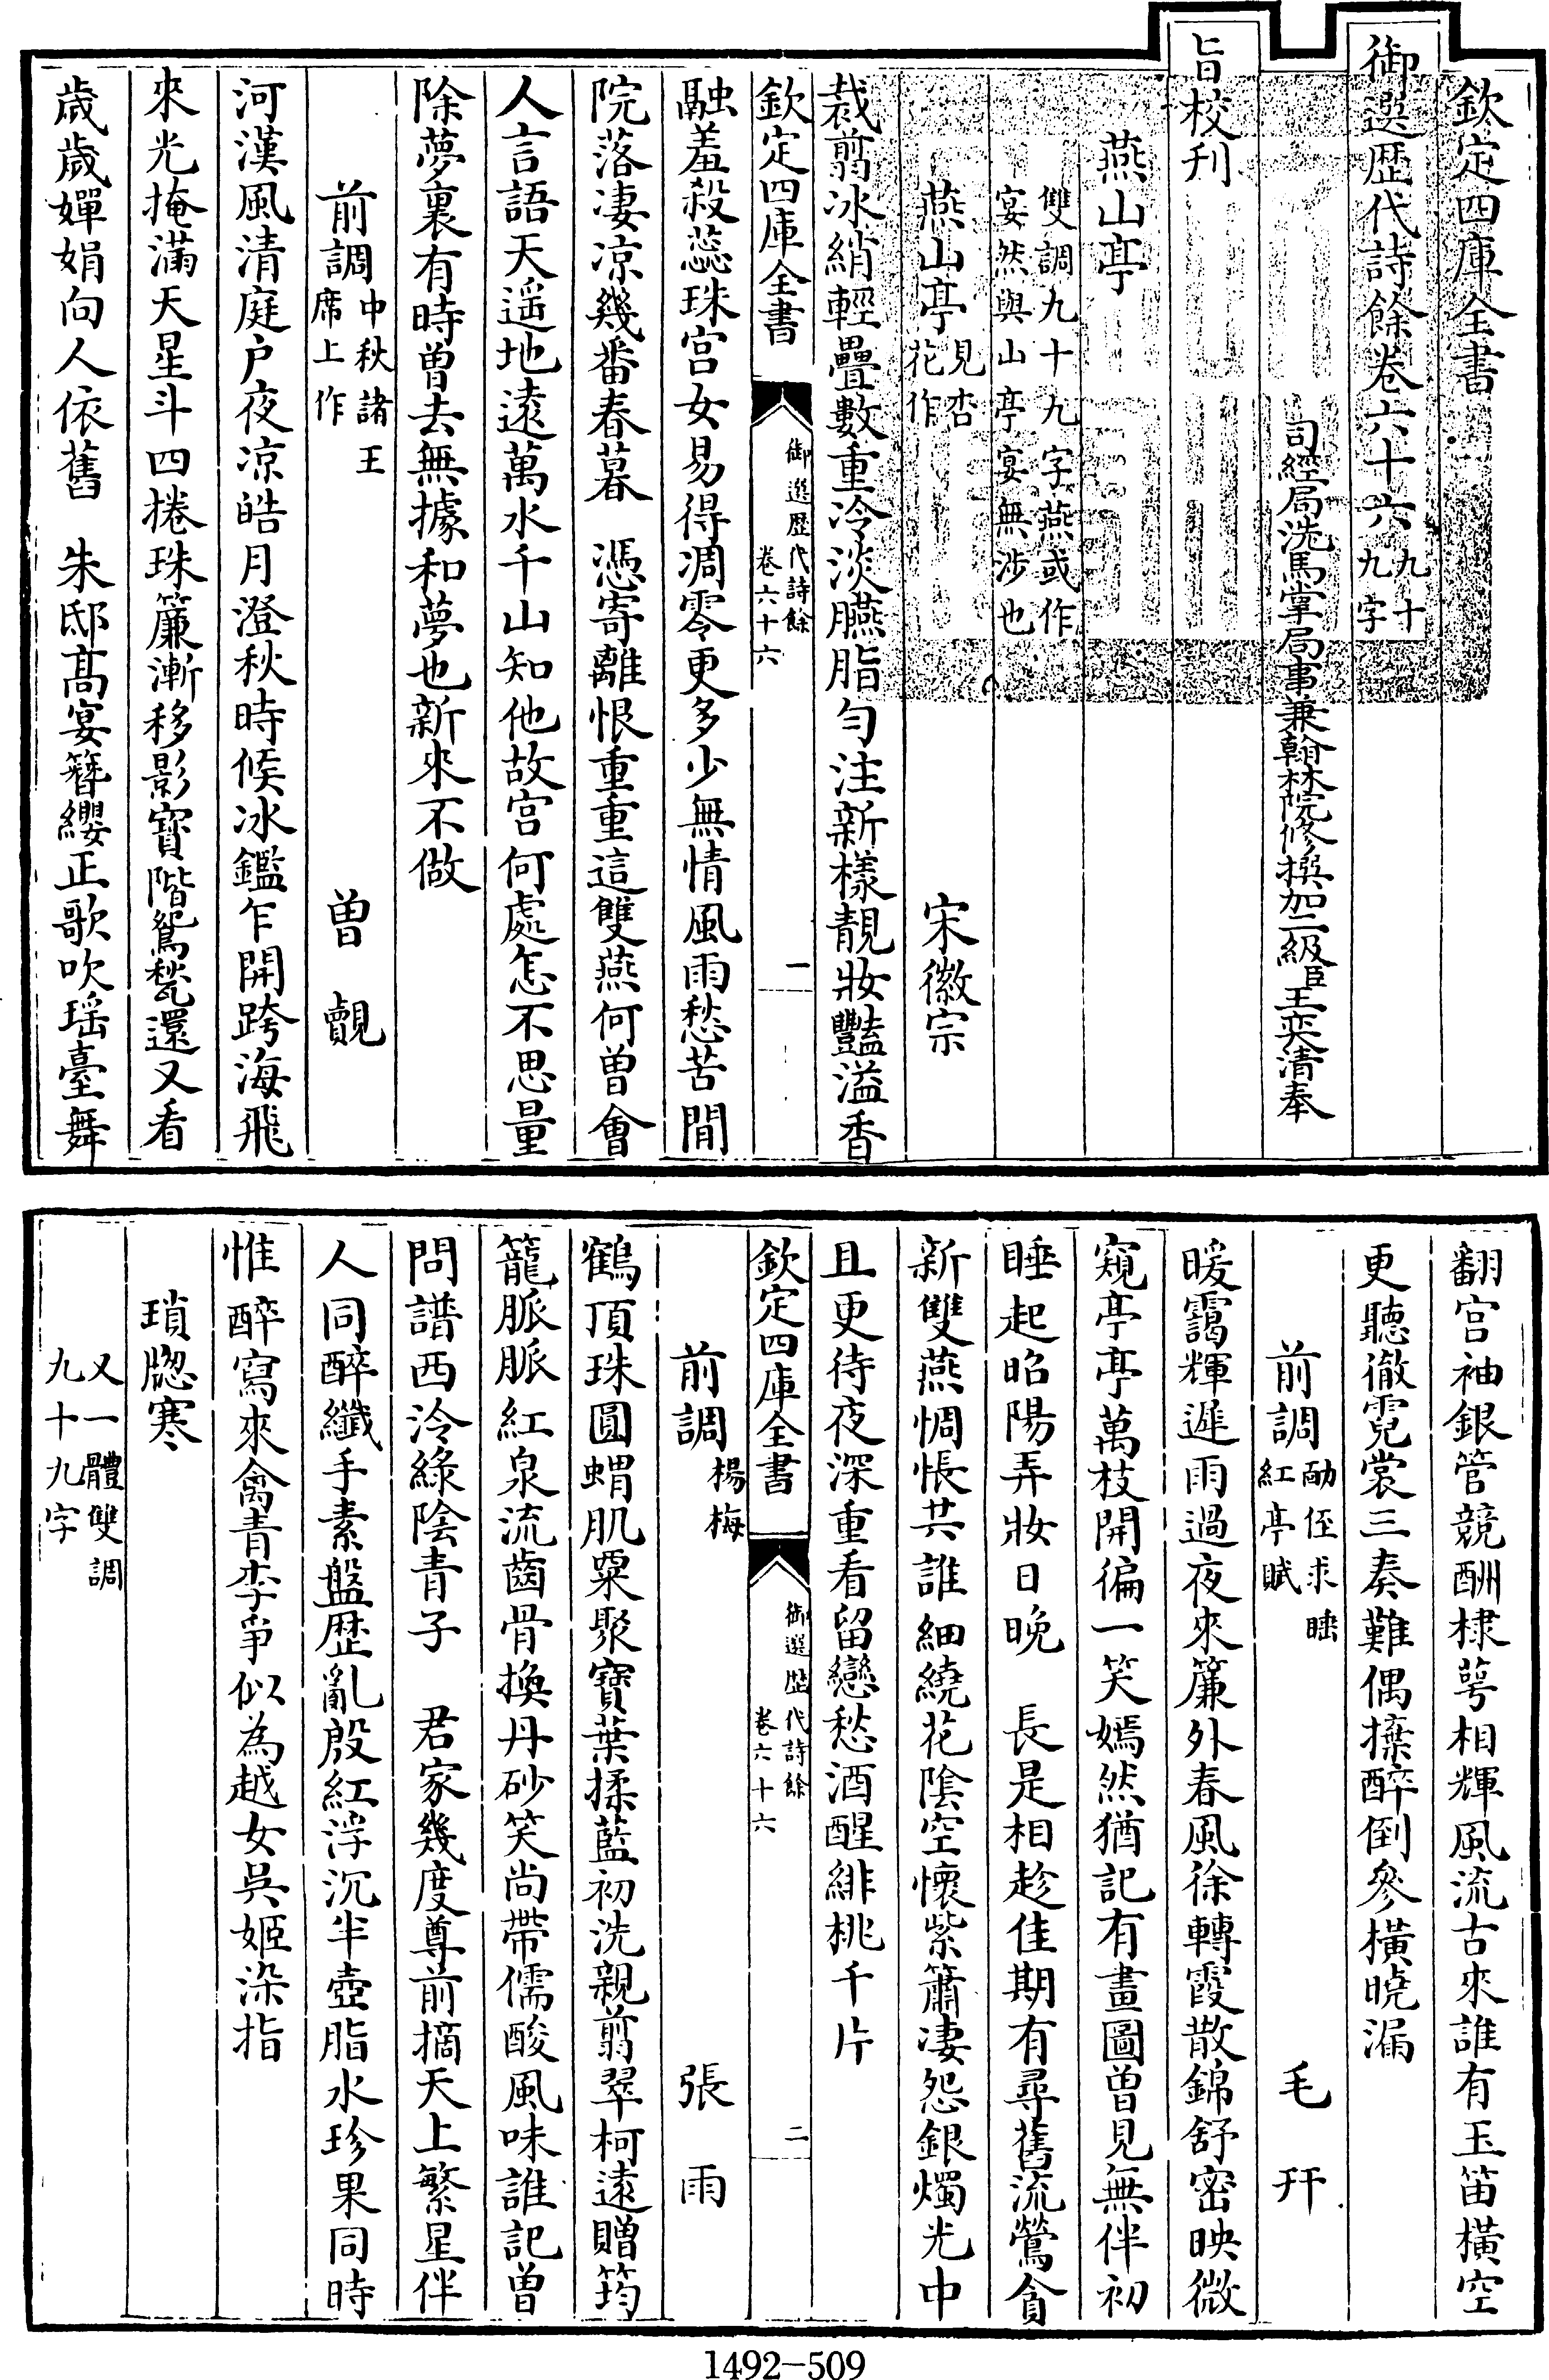 欽定四庫全書
御選歴代詩餘卷六十六九十九字
司經局洗馬掌局事兼翰林院修撰加二級臣王奕清奉
旨校刋
燕山亭
雙調九十九字燕或作
宴然與山亭宴無涉也
燕山亭見杏花作　宋徽宗
裁翦冰綃輕疊數重冷淡臙脂匀注新様靚妝豔溢香
欽定四庫全書　御選歴代詩餘卷六十六　一
融羞殺蕊珠宫女易得凋零更多少無情風雨愁苦閒
院落凄凉幾番春暮　憑寄離恨重重這雙燕何曽會
人言語天遥地逺萬水千山知他故宫何處怎不思量
除夢裏有時曽去無據和夢也新來不做
前調中秋諸王席上作　曽覿
河漢風清庭户夜凉皓月澄秋時候冰鑑乍開跨海飛
來光掩滿天星斗四捲珠簾漸移影寳階鴛甃還又看
歳歳嬋娟向人依舊　朱邸髙宴簪纓正歌吹瑶臺舞
翻宫袖銀管競酬棣萼相輝風流古來誰有玉笛横空
更聽徹霓裳三奏難偶拚醉倒參横曉漏
前調酴醿侄求睡紅亭賦　毛幵
暖靄輝遲雨過夜來簾外春風徐轉霞散錦舒密映微
窺亭亭萬枝開徧一笑嫣然猶記有畫圖曽見無伴初
睡起昭陽弄妝日晚　長是相趁佳期有尋舊流鶯貪
新雙燕惆悵共誰細繞花隂空懐紫簫凄怨銀燭光中
且更待夜深重看留戀愁酒醒緋桃千片
欽定四庫全書　御選歴代詩餘卷六十六　二
前調楊梅　張雨
鶴頂珠圓蝟肌粟聚寳葉揉藍初洗親翦翠柯逺贈筠
籠脈脈紅泉流齒骨換丹砂笑尚帶儒酸風味誰記曽
問譜西泠綠陰青子　君家幾度尊前摘天上繁星伴
人同醉纖手素盤歴亂殷紅浮沉半壺脂水珍果同時
惟醉寫來禽青李爭似為越女吳姬染指
瑣牕寒
又一體雙調
九十九字
1492-509